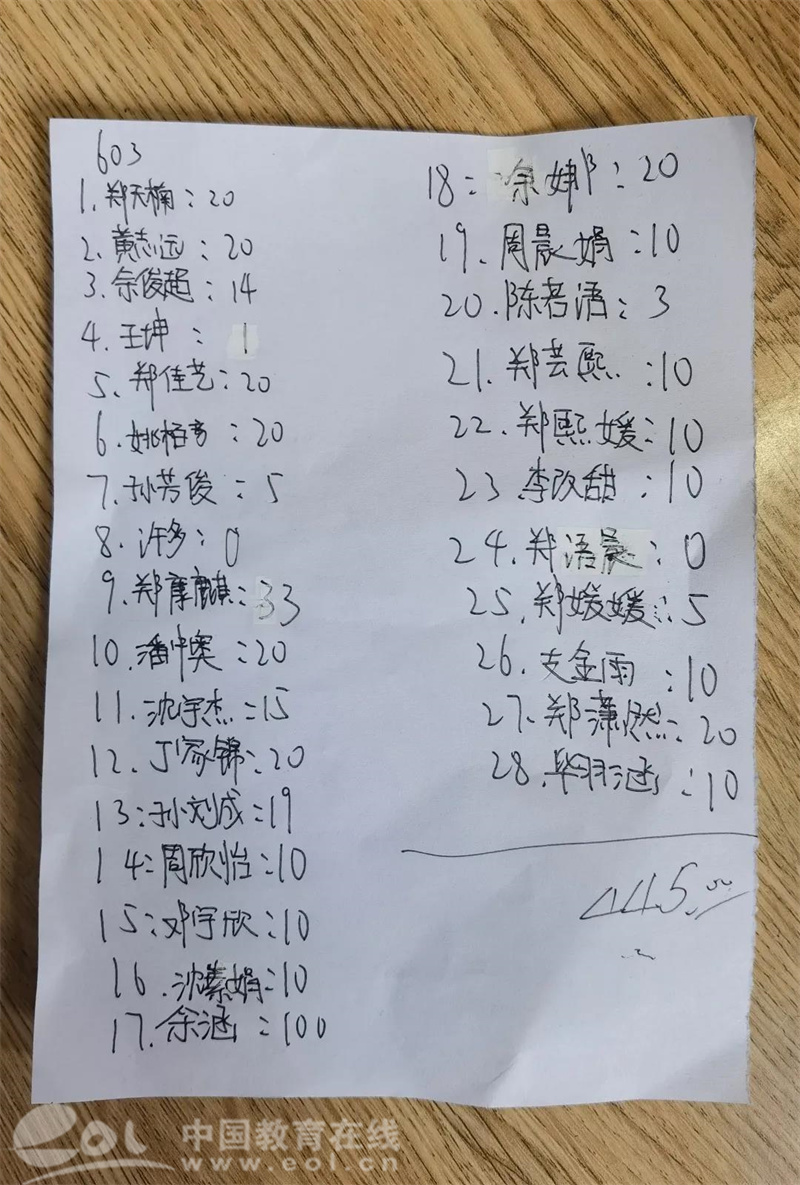 603
1. 郑天楠：20
2. 黄志远：20
3. 余俊超：14
4. 王坤：1
5. 郑佳艺：20
6. 姚栢亨：20
7. 孙芳俊：5
8. 许多：0
9. 郑摩麒：33
10. 潘中奥：20
11. 沈宇杰：15
12. 丁家锦：20
13：孙刘成：19
14：周欣怡：10
15：邓宇欣：10
16. 沈素娟：10
17. 余涵：100
18：余婢：20
19. 周晨娟：10
20. 陈若语：3
21. 郑芸熙：10
22. 郑熙媛：10
23 李改甜：10
24. 郑语晨：0
25. 郑媛媛：5
26. 支金雨：10
27. 郑潇然：20
28. 毕羽涵：10
445.00
eol 中国教育在线
www.eol.cn